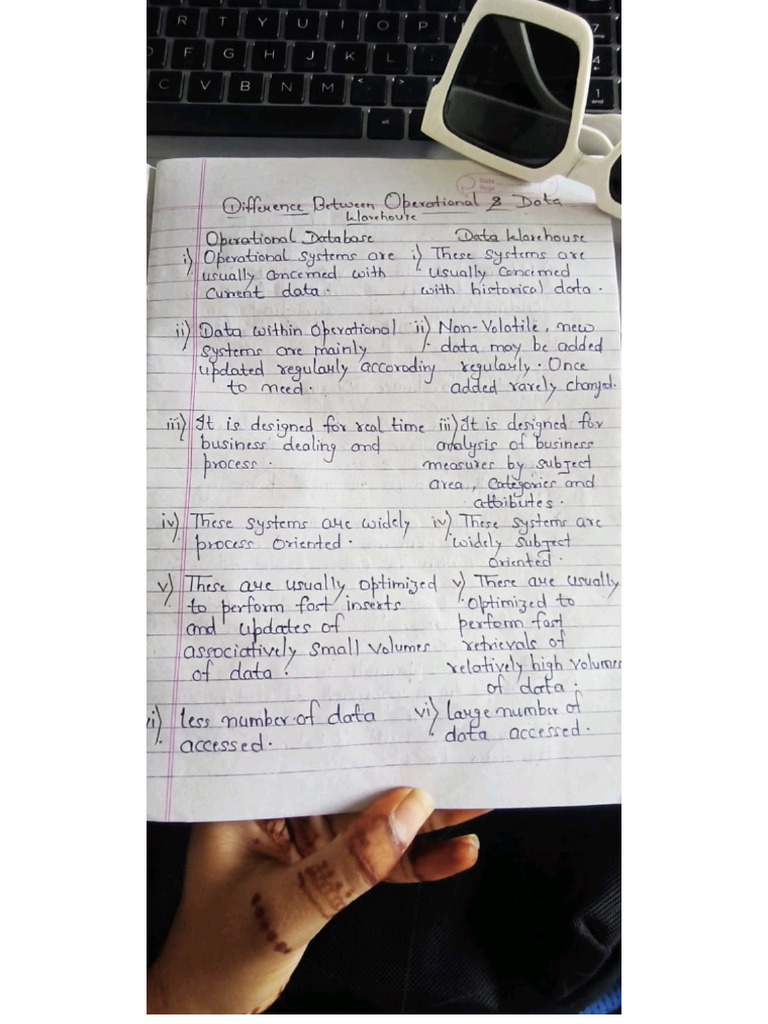 R T Y U I O P
F G H J K L
C V B N M < >
alt
7
4
1
end
Date
Page
① Difference Between Operational & Data
Warehouse
Operational Database
i) Operational systems are
usually concerned with
current data.
ii) Data within operational
systems are mainly
updated regularly accoroding
to need.
iii) It is designed for real time
business dealing and
process.
iv) These systems are widely
process oriented.
v) These are usually optimized
to perform fast inserts
and updates of
associatively small volumes
of data.
i) less number of data
accessed.
Data Warehouse
i) These systems are
usually concerned
with historical data.
ii) Non-Volatile, new
data may be added
regularly. Once
added rarely changed.
iii) It is designed for
analysis of business
measures by subject
area, categories and
attibutes.
iv) These systems are
widely subject
oriented.
v) These are usually
optimized to
perform fast
retrievals of
relatively high volumes
of data.
vi) large number of
data accessed.